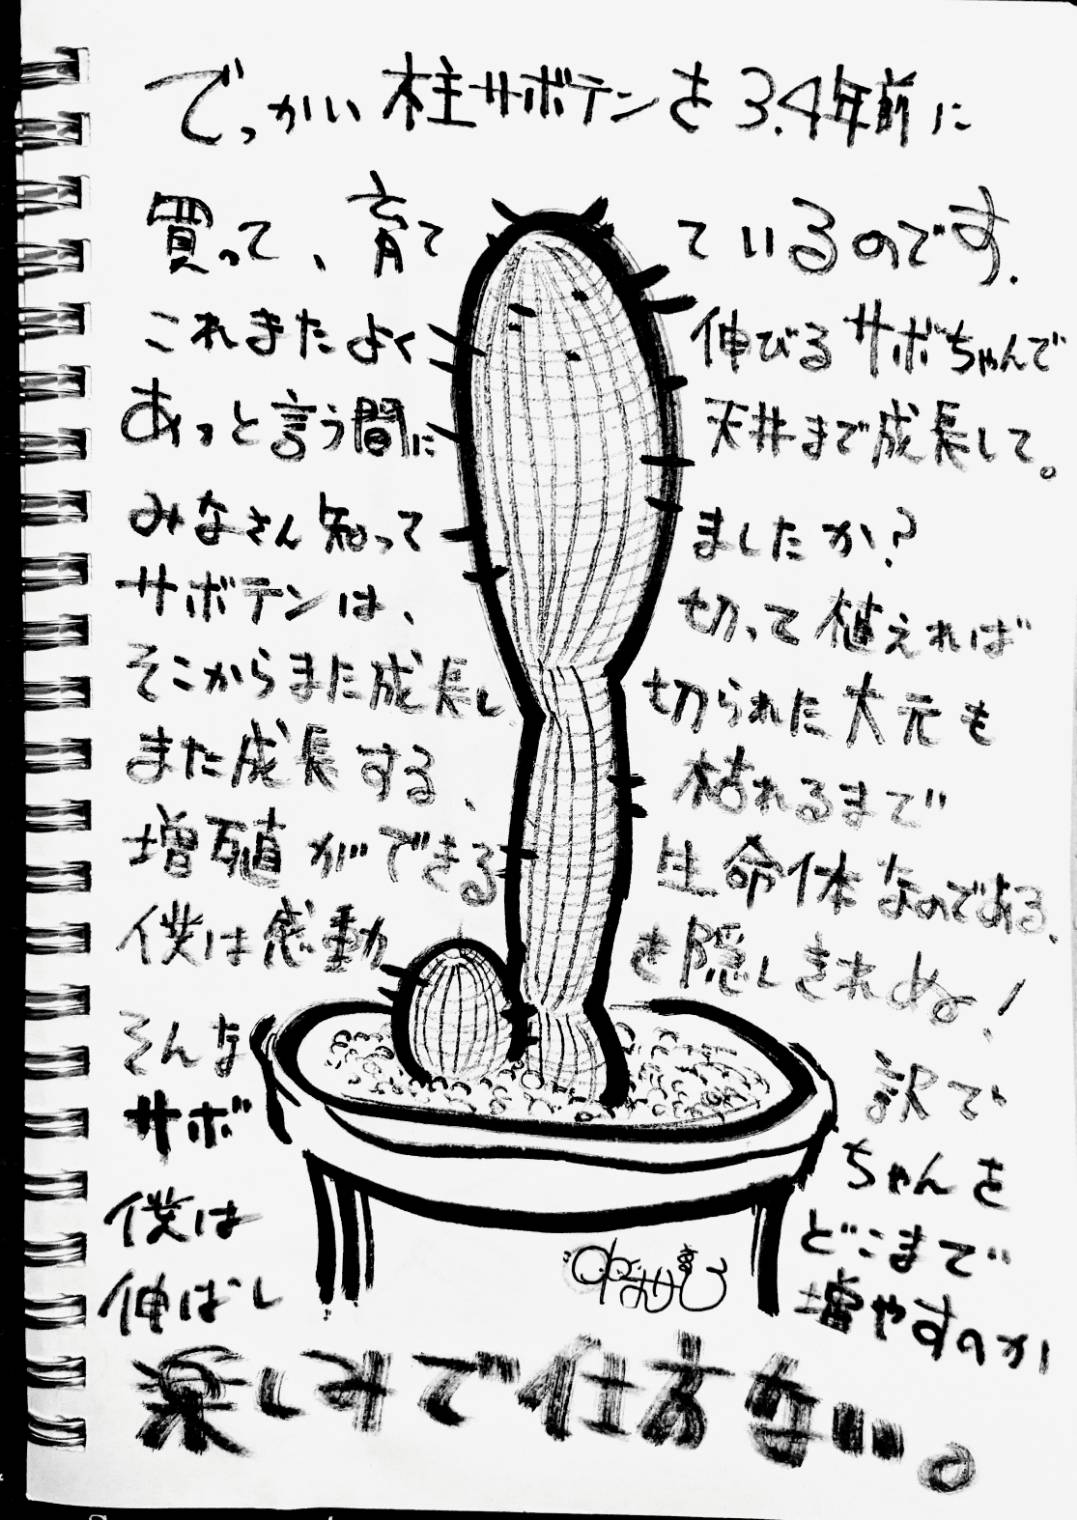 でっかい柱サボテンを3.4年前に
買って、育てているのです.
これまたよく伸びるサボちゃんで
あっと言う間に天井まで成長して。
みなさん知ってましたか?
サボテンは、切って植えれば
そこからまた成長し切られた大元も
また成長する、枯れるまで
増殖ができる生命体なのである、
僕は感動を隠しきれぬ!
そんな訳で
サボちゃんを
僕はどこまで
伸ばし増やすのか
楽しみで仕方ない。